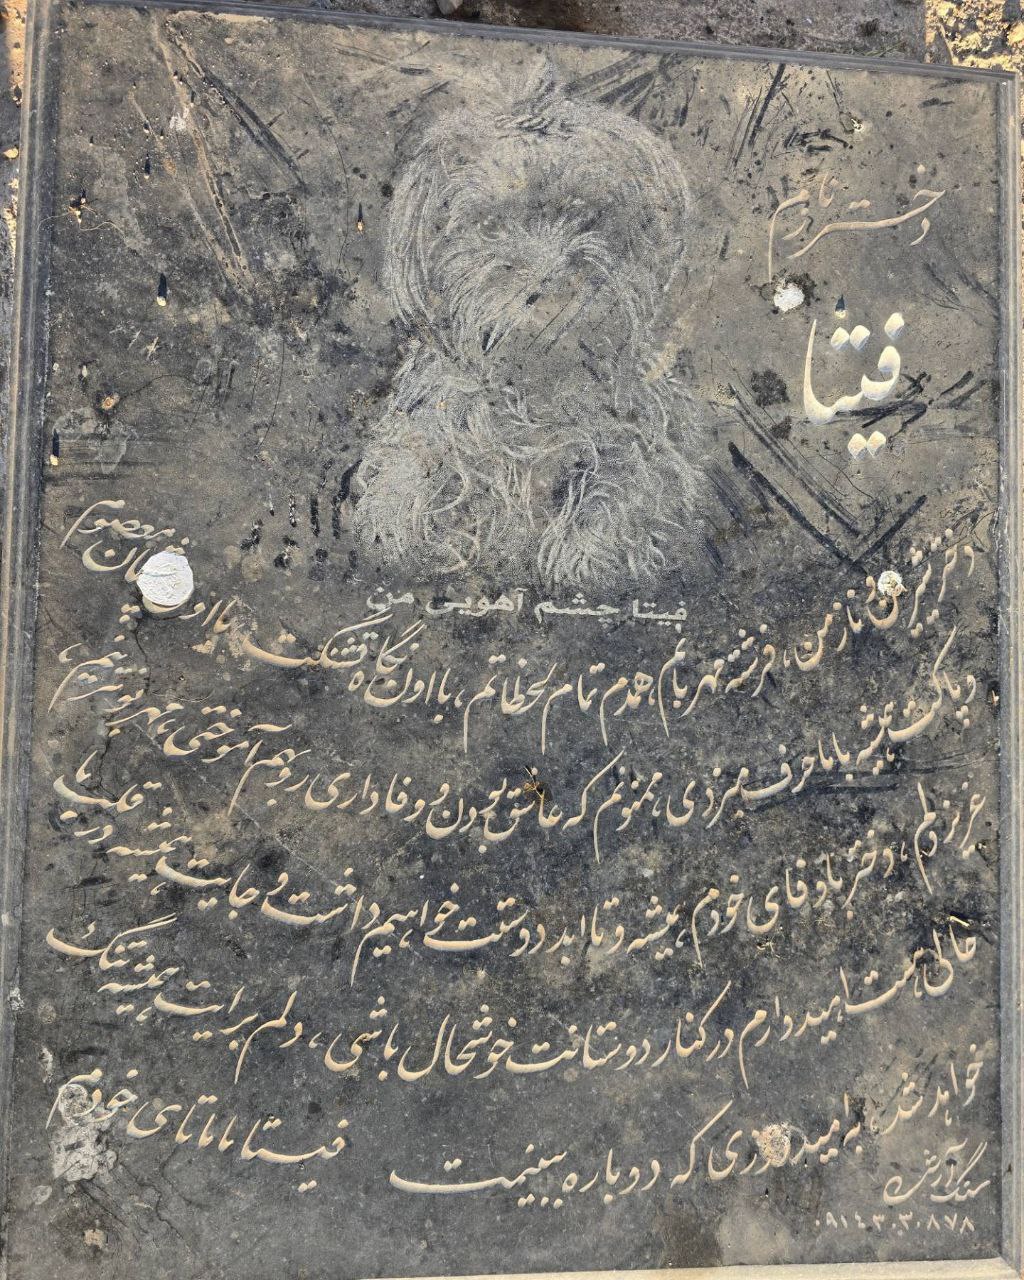 دختر نازم
فیتا
فیتا چشم آهویی من
دختر شیرین و ناز من، فرشته مهربانم، همدم تمام لحظاتم، با اون نگاه قشنگت با اون چشمان معصوم
و پاکت همیشه باما حرف میزدی، ممنونم که عاشق بودن و وفاداری رو بهم آموختی، مهربونترینم،
عزیز دلم، دختر باوفای خودم، همیشه و تا ابد دوستت خواهیم داشت و جایت همیشه در قلب ما
خالی است امیدوارم در کنار دوستانت خوشحال باشی، دلم برایت همیشه تنگ
خواهد شد، به امید روزی که دوباره ببینیمت فیتا ماماتای خودم
سنگ آرش
۰۹۱۴۳۰۳۰۸۷۸